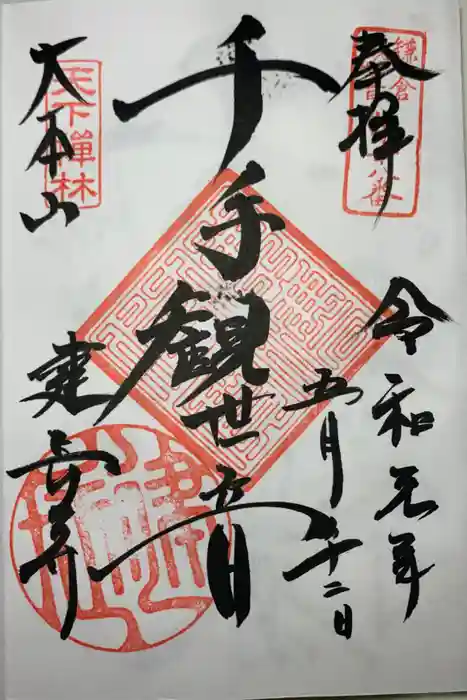 奉拝
鎌倉
八番
令和元年
五月十二日
千手観世音
大本山
天下禅林
建長寺